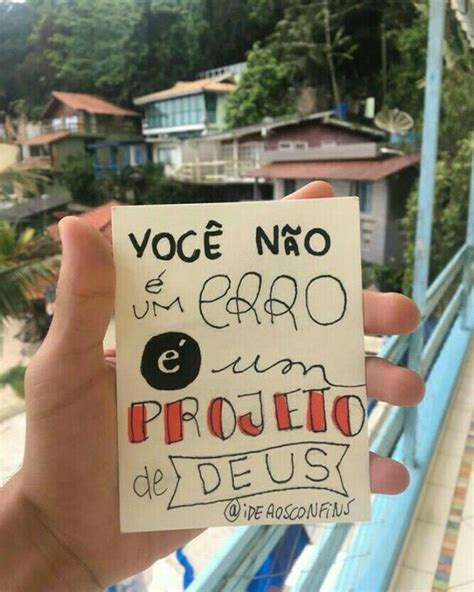 VOCÊ NÃO
é
UM ERRO
é um
PROJETO
de DEUS
@iDEAOSCONFiNS